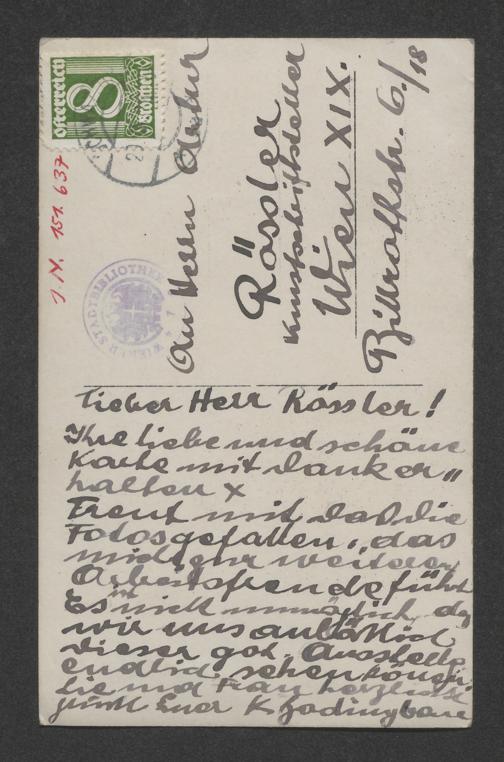 Österreich
8
Groschen
J.N. 151.637
WIENER STADTBIBLIOTHEK
An Herrn Artur
Rössler
Kunstschriftsteller
Wien XIX.
Billrothstr. 6/18
Lieber Herr Rössler!
Ihre liebe und schöne
Karte mit Dank er"
halten x
Freut mich daß die
Fotos gefallen, das
mich zur weiteren
Arbeitsfreude führt
Es ist nicht unmöglich daß
wir uns anläßlich
dieser Ausstellg
endlich sehen können
Sie und Frau herzlichst
grüßt Euer